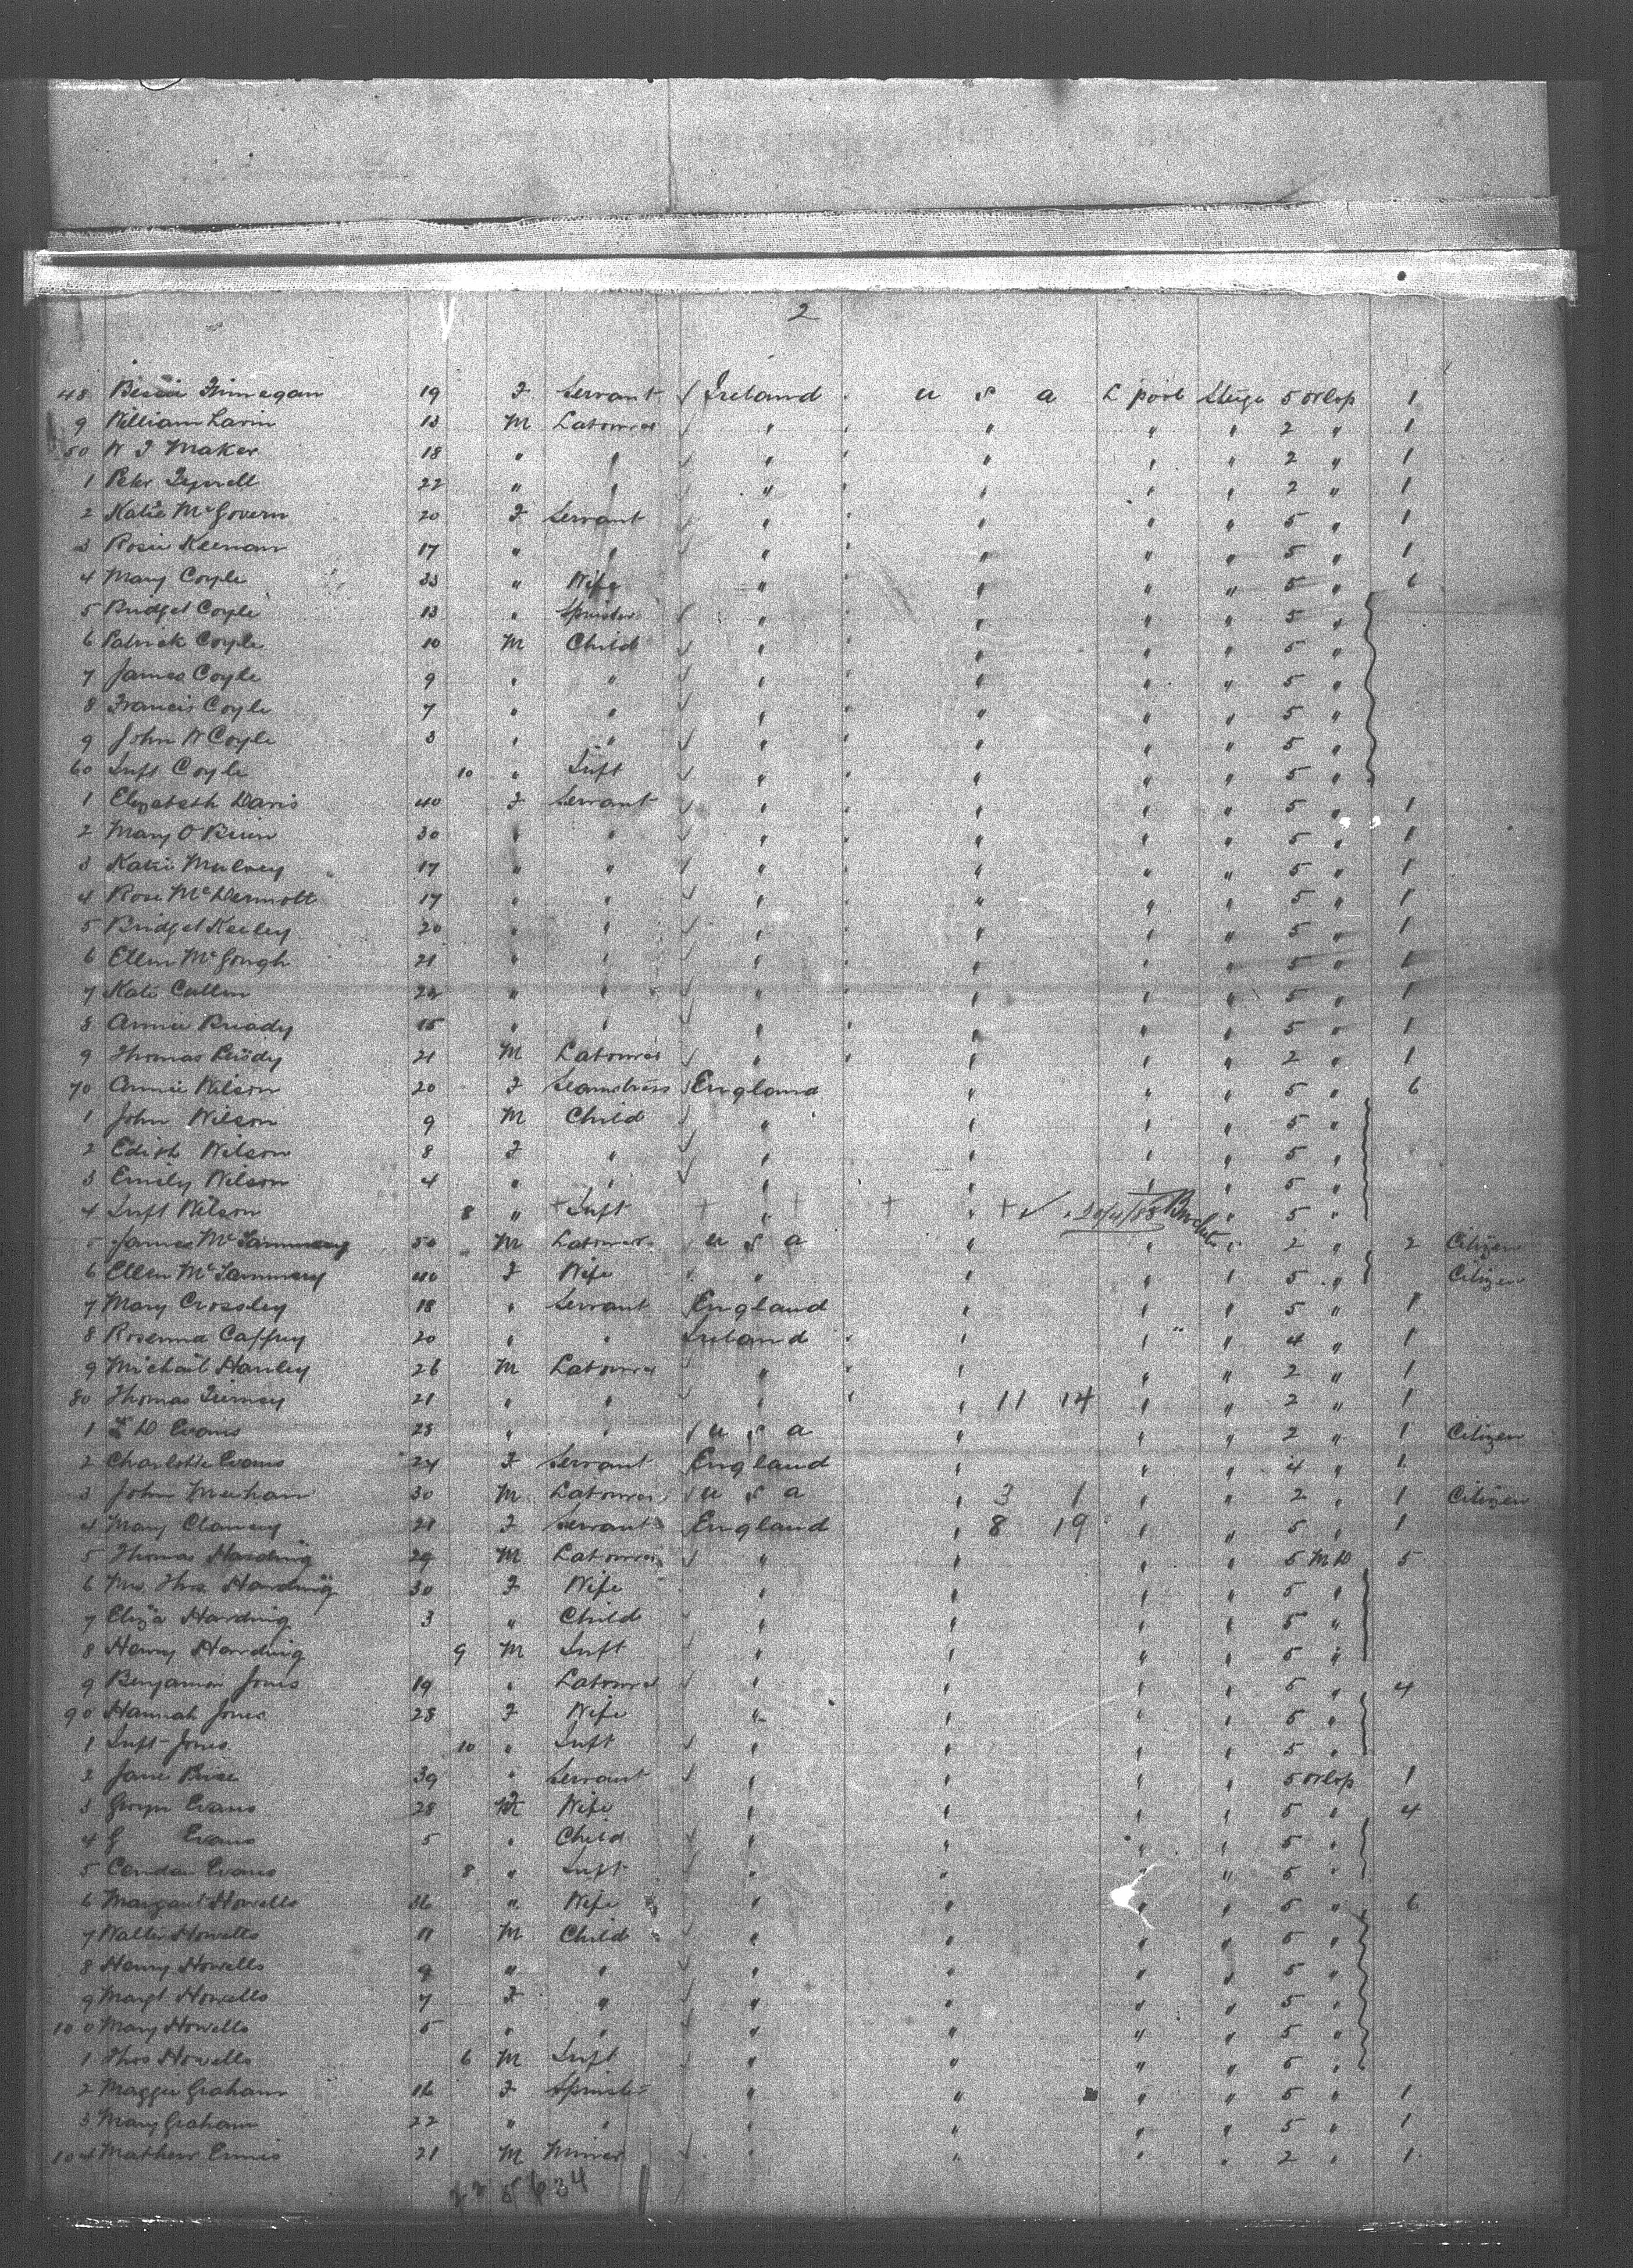 2
48 Bessie Finnegan 19 F Servant Ireland U S A L'pool Stge 5 orlop 1
9 William Lavin 13 M Labourer " " " " 2 " 1
50 W J Maker 18 " " " " " " 2 " 1
1 Peter 22 " " " " " " 2 " 1
2 Katie McGovern 20 F Servant " " " " 5 " 1
3 Rosie Keenan 17 " " " " " " 5 " 1
4 Mary Coyle 33 " Wife " " " " 5 " 6
5 Bridget Coyle 13 " Spinster " " " " 5 "
6 Patrick Coyle 10 M Child " " " " 5 "
7 James Coyle 9 " " " " " " 5 "
8 Francis Coyle 7 " " " " " " 5 "
9 John W Coyle 3 " " " " " " 5 "
60 Inft Coyle 10 " Inft " " " " 5 "
1 Elizabeth Davis 40 F Servant " " " " 5 " 1
2 Mary O Brien 30 " " " " " " 5 " 1
3 Katie Mulvey 17 " " " " " " 5 " 1
4 Rose McDermott 17 " " " " " " 5 " 1
5 Bridget Keeley 20 " " " " " " 5 " 1
6 Ellen McGough 21 " " " " " " 5 " 1
7 Kate Cullen 22 " " " " " " 5 " 1
8 Annie Briody 15 " " " " " " 5 " 1
9 Thomas 21 M Labourer " " " " 2 " 1
70 Annie Wilson 20 F Seamstress England " " " 5 " 6
1 John Wilson 9 M Child " " " " 5 "
2 Edith Wilson 8 F " " " " " 5 "
3 Emily Wilson 4 " " " " " " 5 "
4 Inft Wilson 8 " Inft " " " 5 "
5 James McSammary 50 M Labourer U S A " " " 2 " 2 Citizen
6 Ellen McSammary 40 F Wife " " " " 5 " Citizen
7 Mary Crossley 18 " Servant England " " " 5 " 1
8 Rosanna Caffrey 20 " " Ireland " " " 4 " 1
9 Michail Hanley 26 M Labourer " " " " 2 " 1
80 Thomas Tierney 21 " " " " 11 14 " " 2 " 1
1 D Evans 28 " " U S A " " " 2 " 1 Citizen
2 Charlotte Evans 24 F Servant England " " " 4 " 1
3 John Meehan 30 M Labourer U S A " 3 1 " " 2 " 1 Citizen
4 Mary Clancey 21 F Servant England " 8 19 " " 5 " 1
5 Thomas Harding 29 M Labourer " " " " 5 M D 5
6 Mrs. Thos. Harding 30 F Wife " " " " 5 "
7 Eliza Harding 3 " Child " " " " 5 "
8 Henry Harding 9 M Inft " " " " 5 "
9 Benjamin Jones 19 " Labourer " " " " 5 " 4
90 Hannah Jones 28 F Wife " " " " 5 "
1 Inft Jones 10 " Inft " " " " 5 "
2 Jane Price 39 " Servant " " " " 5 orlop 1
3 Gwyn Evans 28 F Wife " " " " 5 " 4
4 G Evans 5 " Child " " " " 5 "
5 Evans 8 " Inft " " " " 5 "
6 Margaret Howells 36 " Wife " " " " 5 " 6
7 Walter Howells 11 M Child " " " " 5 "
8 Henry Howells 9 " " " " " " 5 "
9 Margt Howells 7 F " " " " " 5 "
100 Mary Howells 5 " " " " " " 5 "
1 Thos Howells 6 M Inft " " " " 5 "
2 Maggie Graham 16 F Spinster " " " " 5 " 1
3 Mary Graham 22 " " " " " " 5 " 1
104 Mathew Ennis 21 M Miner " " " " 2 " 1